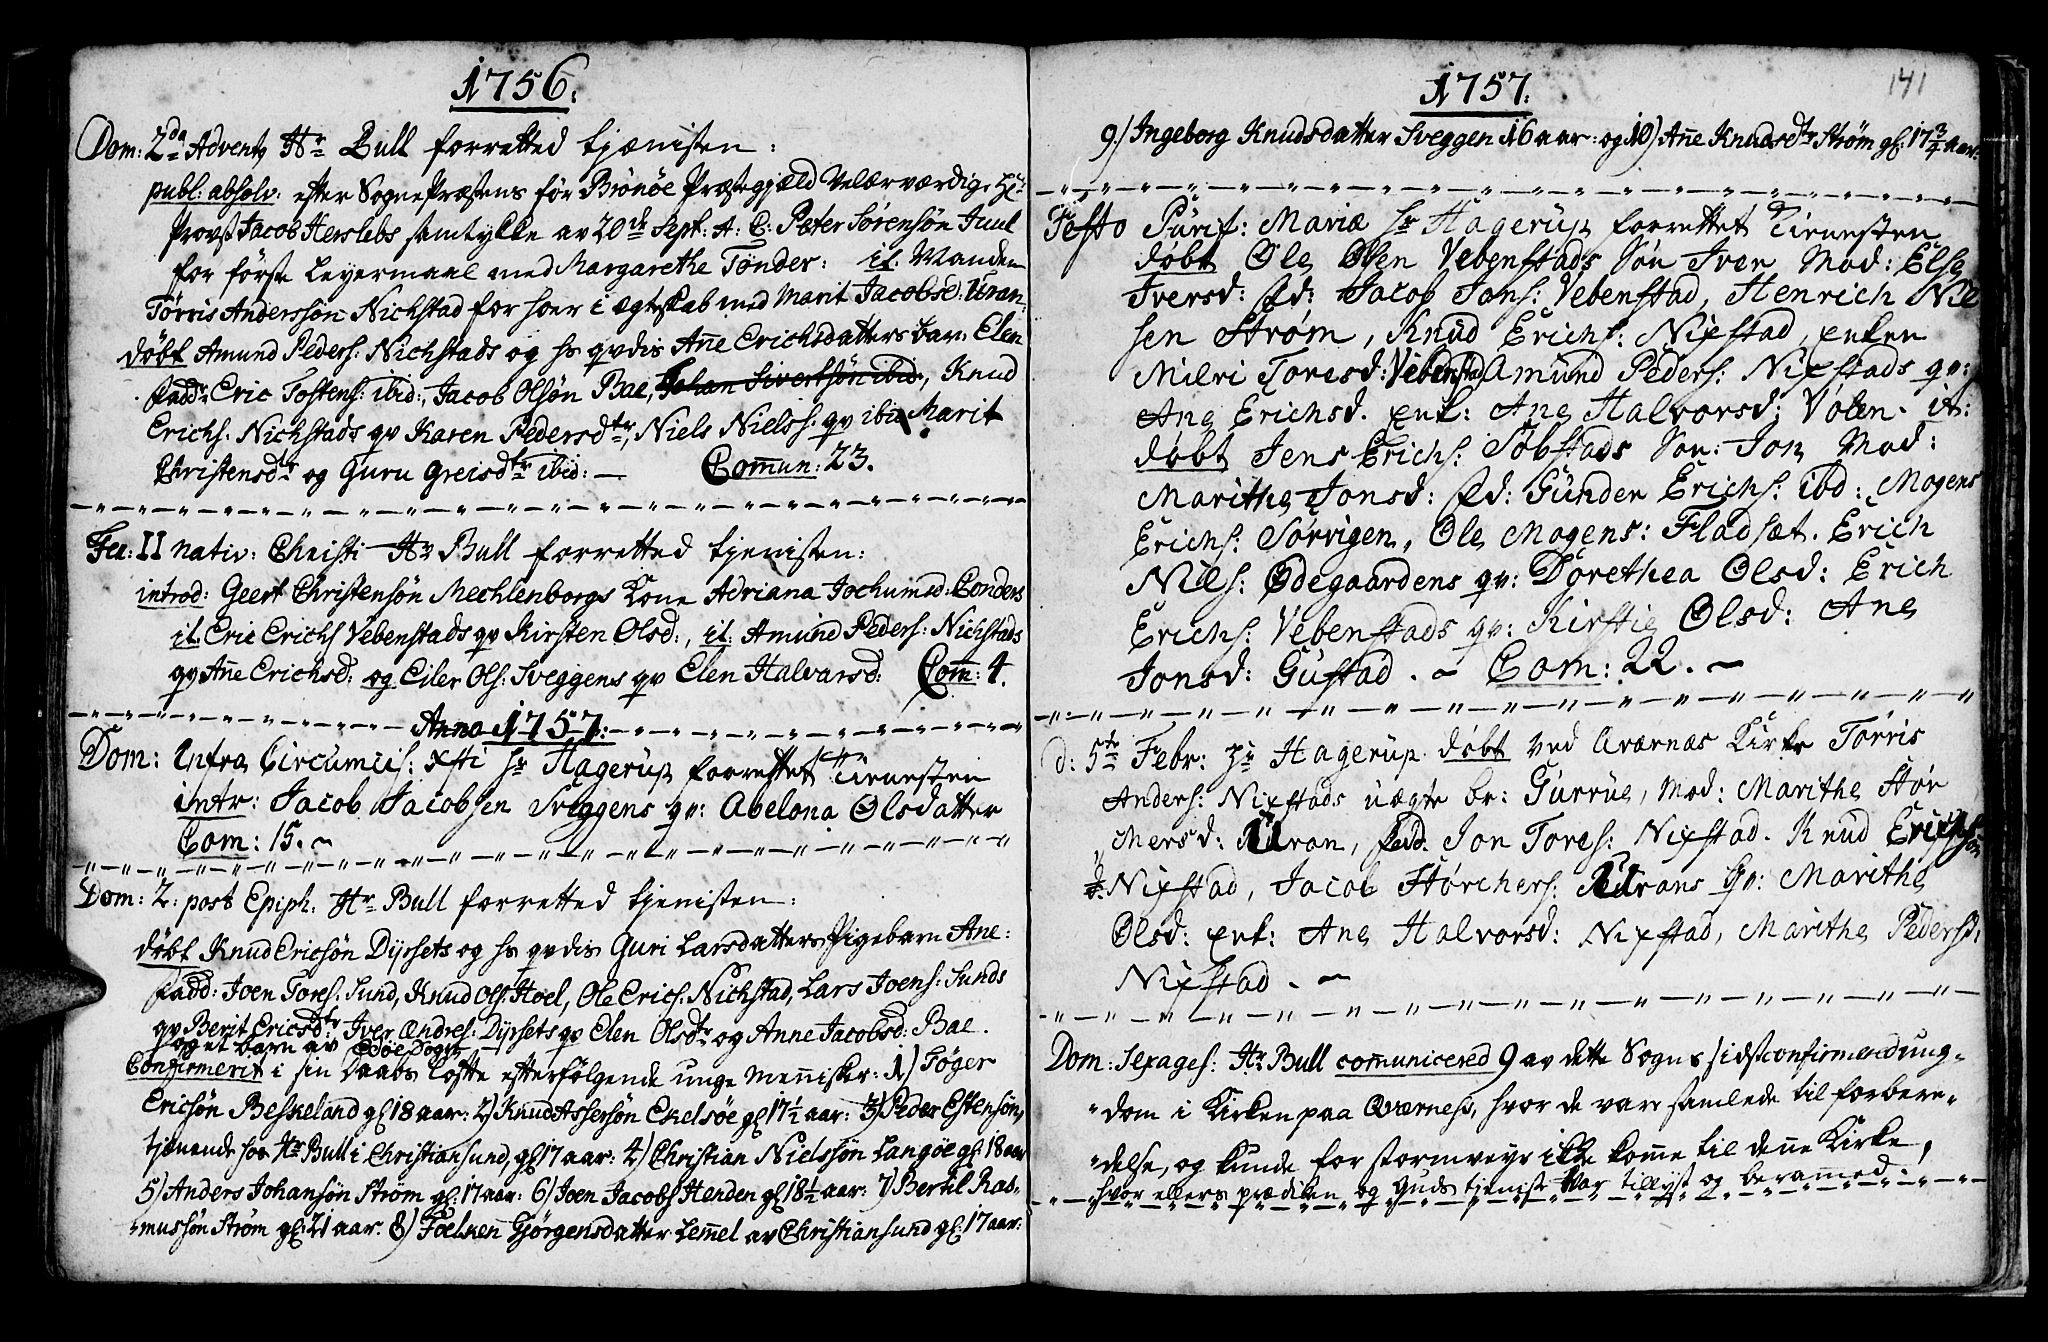 1756.
Dom: 2da Advent Hr Bull forretted tjænisten:
publ: absolv: efter Sogne Præstens för Brönöe Præstegjæld Velærværdige Hr
Provst Jacob Herslebs samtykke av 20de Sept: A: C: Peter Sörensön Juul
for förste Leyermaal med Margarethe Tönder: it. Manden
Törris Andersön Nichstad for hoer i ægteskab med Marit Jacobsd: Uran:
döbt Amund Peders: Nichstads og hs qvdis Añe Erichsdatters barn Elen
fadd: Eric Tostens: ibid:, Jacob Olsön Bae, Johan Sivertsön ibid:, Knud
Erichs. Nichstads qv Karen Pedersdtr, Niels Nielss: qv ibid Marit
Christensdtr og Guru Greisdtr ibid: — Com̃un: 23.
Fer: II nativ: Christi Hr Bull forretted tjenisten:
introd: Geert Christensön Mechlenborgs Kone Adriana Jochumsd: Conders
it. Eric Erichs Vebenstads qv Kirsten Olsd:, it: Amund Peders: Nichstads
qv Añe Erichsd: og Eiler Ols: Sveggens qv Elen Halvarsd: Com̃: 4.
Anno 1757:
Dom: Infra Circumcis: Xsti Hr Hagerup forrettet Tienesten
intr: Jacob Jacobsen Sveggens qv: Abelona Olsdatter
Com: 15. ~
Dom: 2: post Epiph. Hr Bull forretted tjenisten:
döbt Knud Ericsön Dyrsets og hs qvdis Guri Larsdatters Pigebarn Ane:
fadd: Joen Tores: Sund, Knud Ols: Hoel, Ole Erics: Nichstad, Lars Joens: Sunds
qv Berit Ericsdtr Iver Andres: Dyrsets qv Elen Olsdtr og Anne Jacobsd: Bae.
og et barn av
Confirmerit i sin Daabs Löfte efterfölgende unge Meñisker: 1) Töger
Ericsön Beskeland gl 18 aar: 2) Knud Assersön Ekelsöe gl 17½ aar: 3) Peder Estensön,
tjenende hos Hr Bull i Christiansund, gl 17 aar: 4) Christian Nielssön Langöe gl: 18 aar
5) Anders Johansön Ström gl: 17 aar: 6) Joen Jacobs Henden gl 18½ aar: 7) Bertil Ras-
mussön Ström gl: 21 aar: 8) Foelken Gjörgensdatter Lem̃el av Christiansund gl: 17 aar:
1757.
141
9.) Ingeborg Knudsdatter Sveggen 16 aar: og 10) Añe Knudsdtr Ström gl: 17¾ aar:
Festo Purif: Mariæ Hr Hagerup forrettet Tienesten
döbt Ole Olsen Vebenstads Sön Iver Mod: Else
Iversd: fd: Jacob Jons: Vebenstad, Henrich Niel
sen Ström, Knud Erichs: Nixstad, enken
Milri Toresd: Vebenstad Amund Peders: Nixstads qv:
Ane Erichsd. enk: Ane Halvorsd: Volen. it:
döbt Jens Erichs: Söbstads Sön: Jon Mod:
Marithe Jonsd: fd: Gunder Erichs: ibd: Mogens
Erichs: Sörvigen, Ole Mogens: Fladsæt. Erich
Niels: Ödegaardens qv: Dorethea Olsd: Erich
Erichs: Vebenstads qv: Kirstie Olsd: Ane
Jonsd: Gustad. ~ Com: 22. ~
d: 5te Febr: Hr Hagerup döbt ved Qværnæs Kirke Törris
Anders: Nixstads uægte br: Gurrue, Mod: Marithe Stör
chersd: Uran, fad. Jon Tores: Nixstad. Knud Erichsön
Nixstad, Jacob Störchers: Urans qv: Marithe
Olsd: enk: Ane Halvorsd: Nixstad, Marithe Pedersd:
Nixstad. ~
Dom: Sexages: Hr Bull com̃unicered 9 av dette Sogns sidst confirmered ung-
dom i Kirken paa Qværness, hvor de vare samlede til forbere-
delse, og kunde for stormveyr ikke kom̃e til deñe Kirke,
hvor ellers prædiken og Guds tjenist var tillyst og beram̃ed.